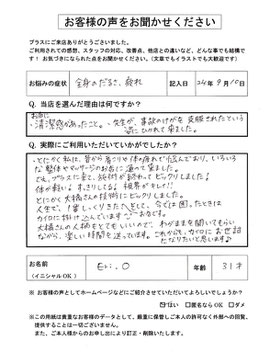 お客様の声をお聞かせください
プラスにご来店ありがとうございました。
ご利用されての感想、スタッフの対応、改善点、他店との違いなど、どんな事でも結構で
す！ お気づきになられた点をお聞かせください。（文章でもイラストでも大歓迎です）
お悩みの症状
全身のだるさ、疲れ
記入日
24年 9月10日
Q. 当店を選んだ理由は何ですか？
お店に
清潔感があったこと。
先生が、事故のけがを克服されたという
Q. 実際にご利用いただいていかがでしたか？
とにかく私は、昔から首こりや体の疲れで悩んでおり、いろいろ
な整体やマッサージのお店に通って来ました。
でも、プラスに来て、施術が終わってビックリしました！
体が軽い！すっきりしてる！視界がちがう！！
とにかく大橋さんの技術にビックリしました。
大橋さんの人柄もとてもいいので、わがままを聞いてもらい
ながら、楽しい時間を送っています。
お名前
（イニシャルOK）
Eri.O
年齢
31才
※ お客様の声としてホームページなどにご紹介させていただいてよろしいでしょうか？
はい
匿名ならOK
ダメ
※この用紙は貴重なお客様のデータとして、厳重に保管しご本人の許可なく外部への閲覧、
提供することは一切ございません。
また、ご本人様からのお申し出により訂正・削除いたします。